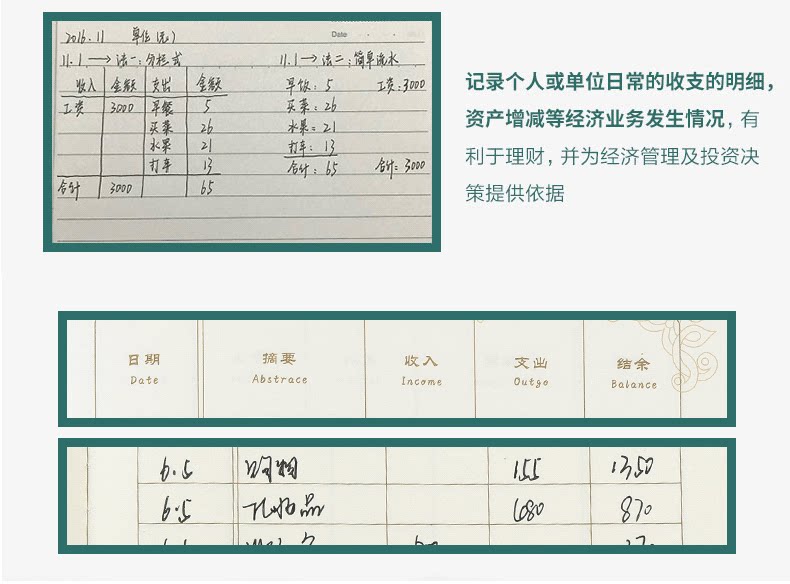 2016.11 单位(元)
Date
11.1 → 法一:分栏式
11.1 → 法二:简单流水
收入 金额 支出 金额
工资 3000 早餐 5
买菜 26
水果 21
打车 13
合计 3000 65
早饭:5 工资:3000
买菜:26
水果:21
打车:13
合计:65 合计:3000
记录个人或单位日常的收支的明细,
资产增减等经济业务发生情况,有
利于理财,并为经济管理及投资决
策提供依据
日期 摘要 收入 支出 结余
Date Abstrace Income Outgo Balance
6.5 购物 155 1350
6.5 化妆品 680 870